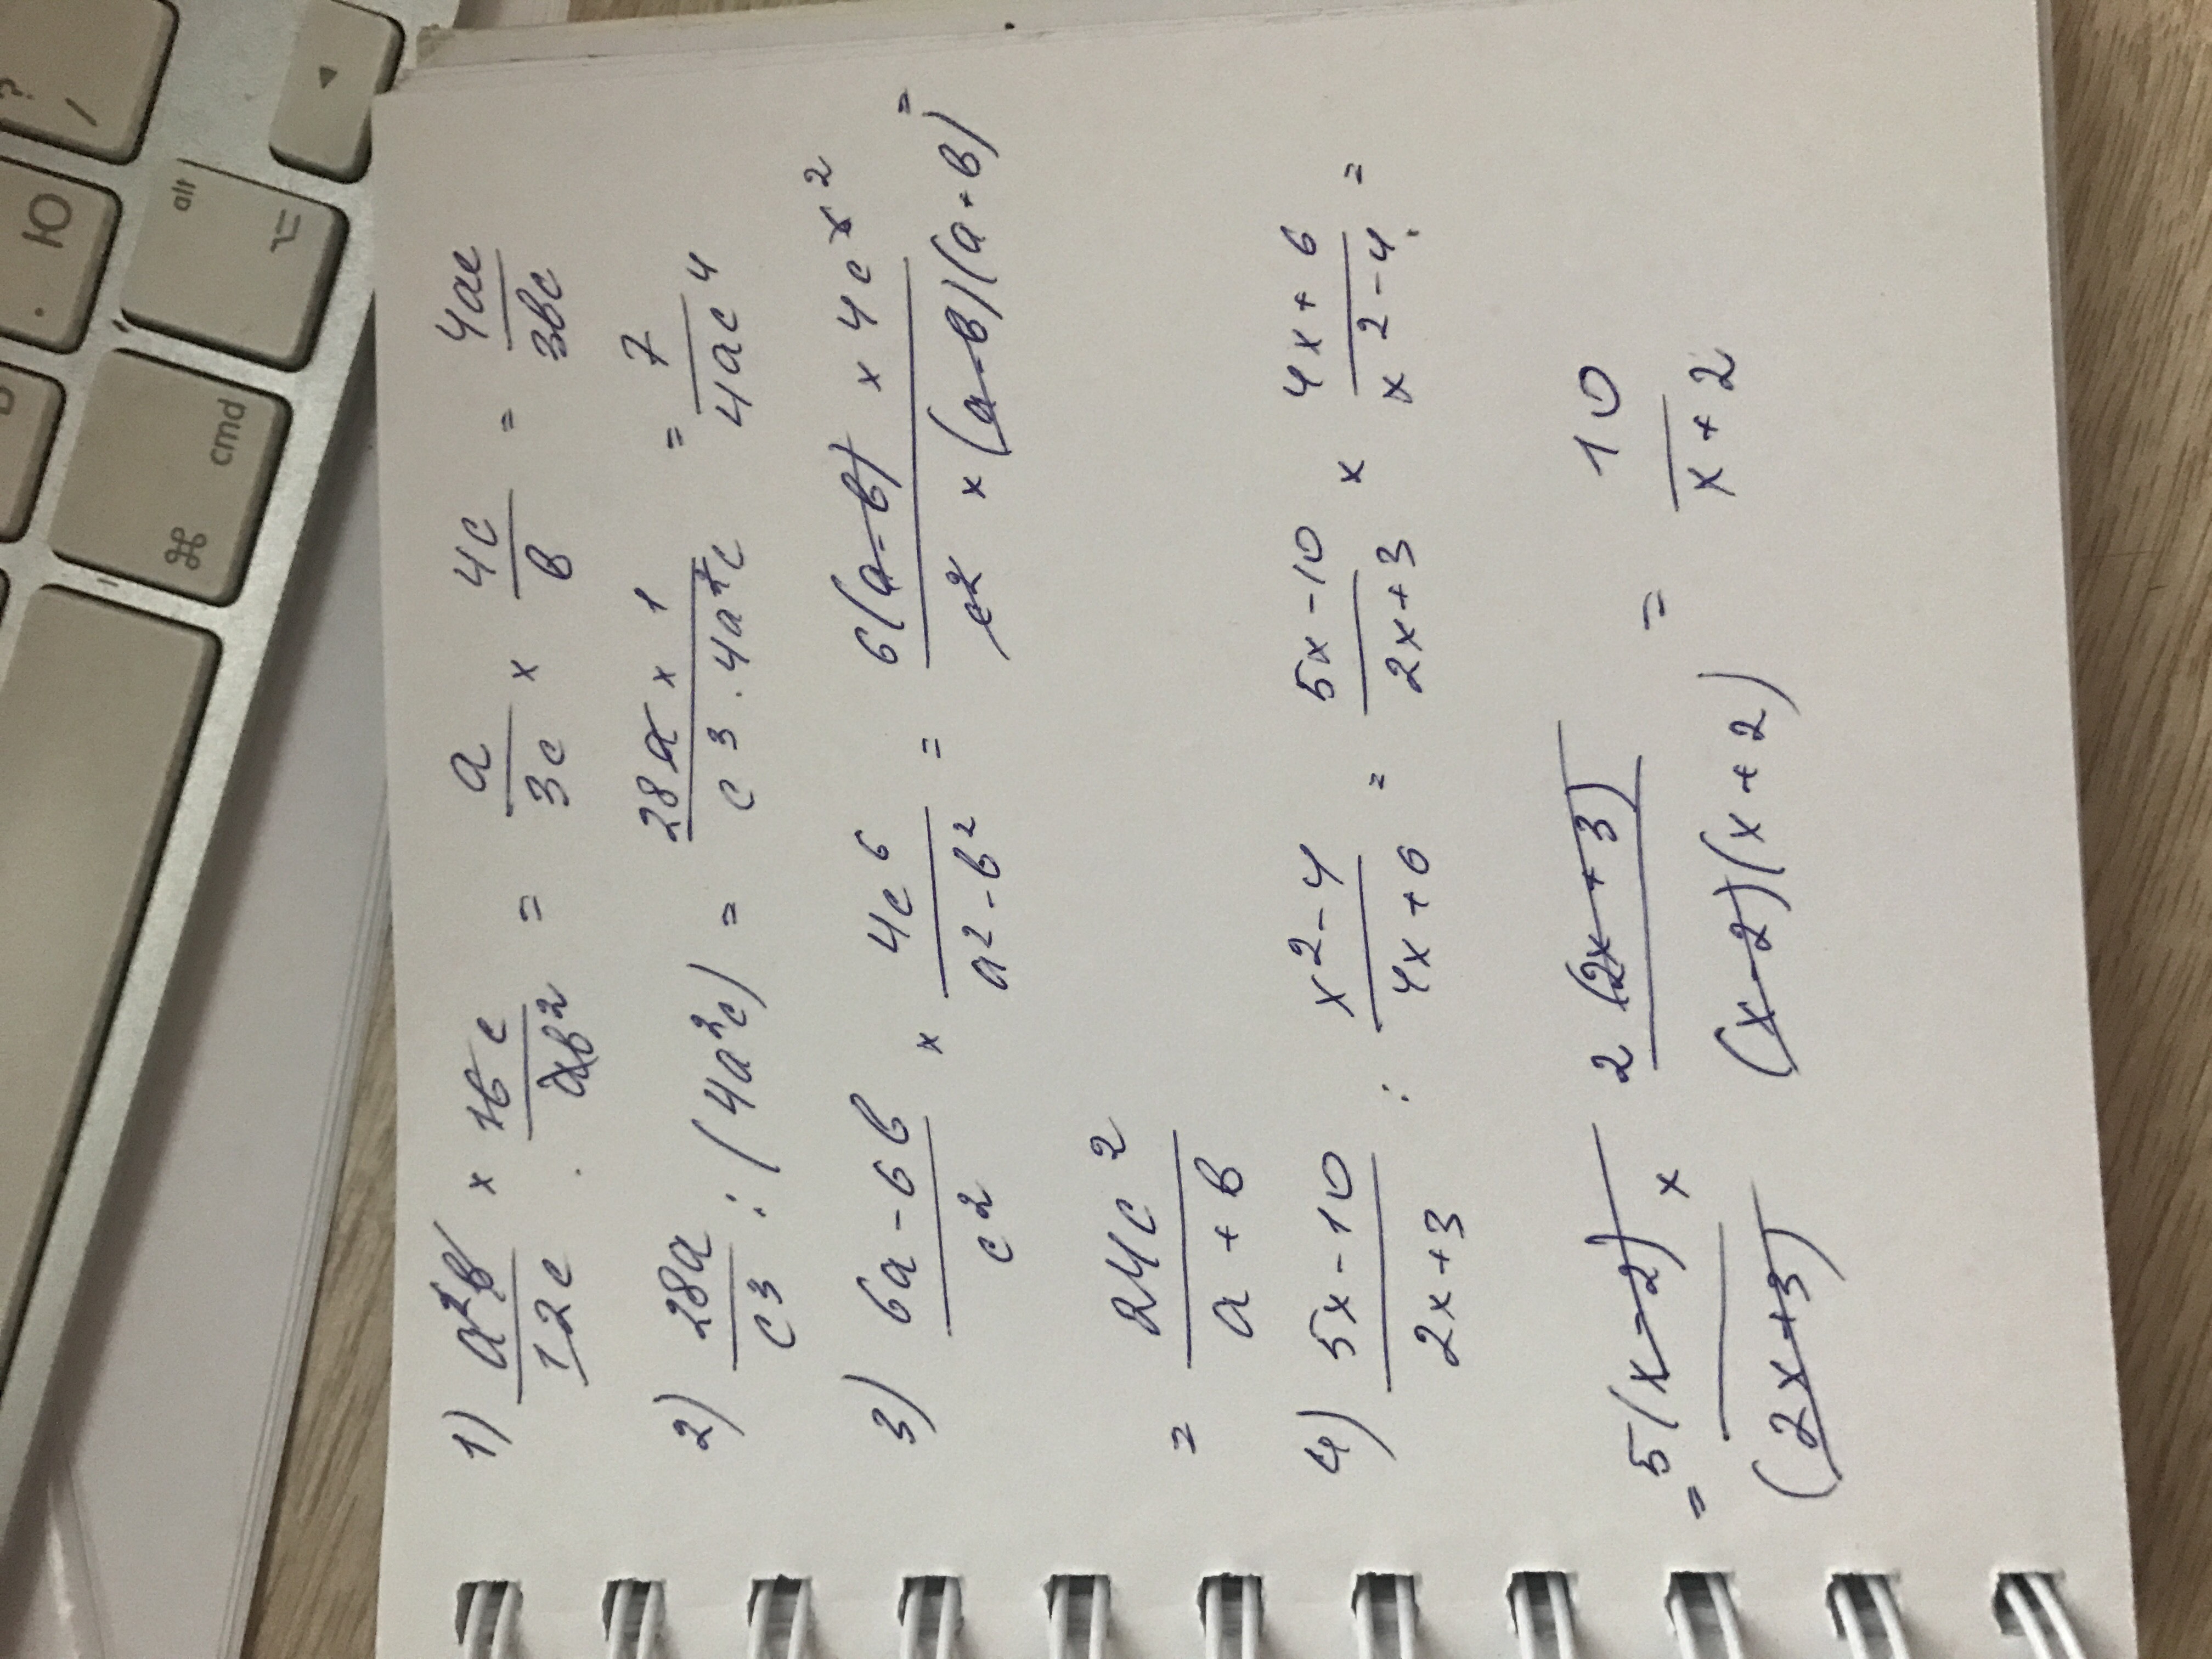 1) a²в/12c × 16c/ав² = a/3c × 4c/в = 4ac/3вc
2) 28a/c³ : (4a²c) = 28a × 1/c³ · 4a²c = 7/4ac⁴
3) 6a - 6в/c² × 4c⁶/a² - в² = 6(a - в) × 4c⁶ ²/c² × (a - в)(a + в) =
= 24c²/a + в
4) 5x - 10/2x + 3 : x² - 4/4x + 6 = 5x - 10/2x + 3 × 4x + 6/x² - 4 =
= 5(x - 2)/(2x + 3) × 2(2x + 3)/(x - 2)(x + 2) = 10/x + 2
? /
Ю .
alt
cmd ⌘